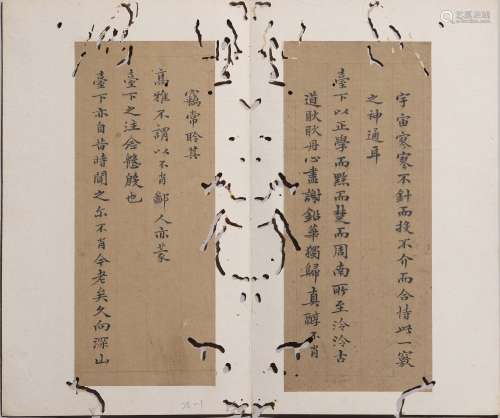 宇宙寥寥不針而投不介而合恃此一竅
之神通耳
臺下以正學而點而夔而周南所至泠泠古
道耿耿丹心盡謝鉛華獨歸真醇不肖
竊常聆其
高雅不謂以不肖鄙人亦蒙
臺下之注念慇殷也
臺下亦自昔時聞之尔不肖今老矣久向深山